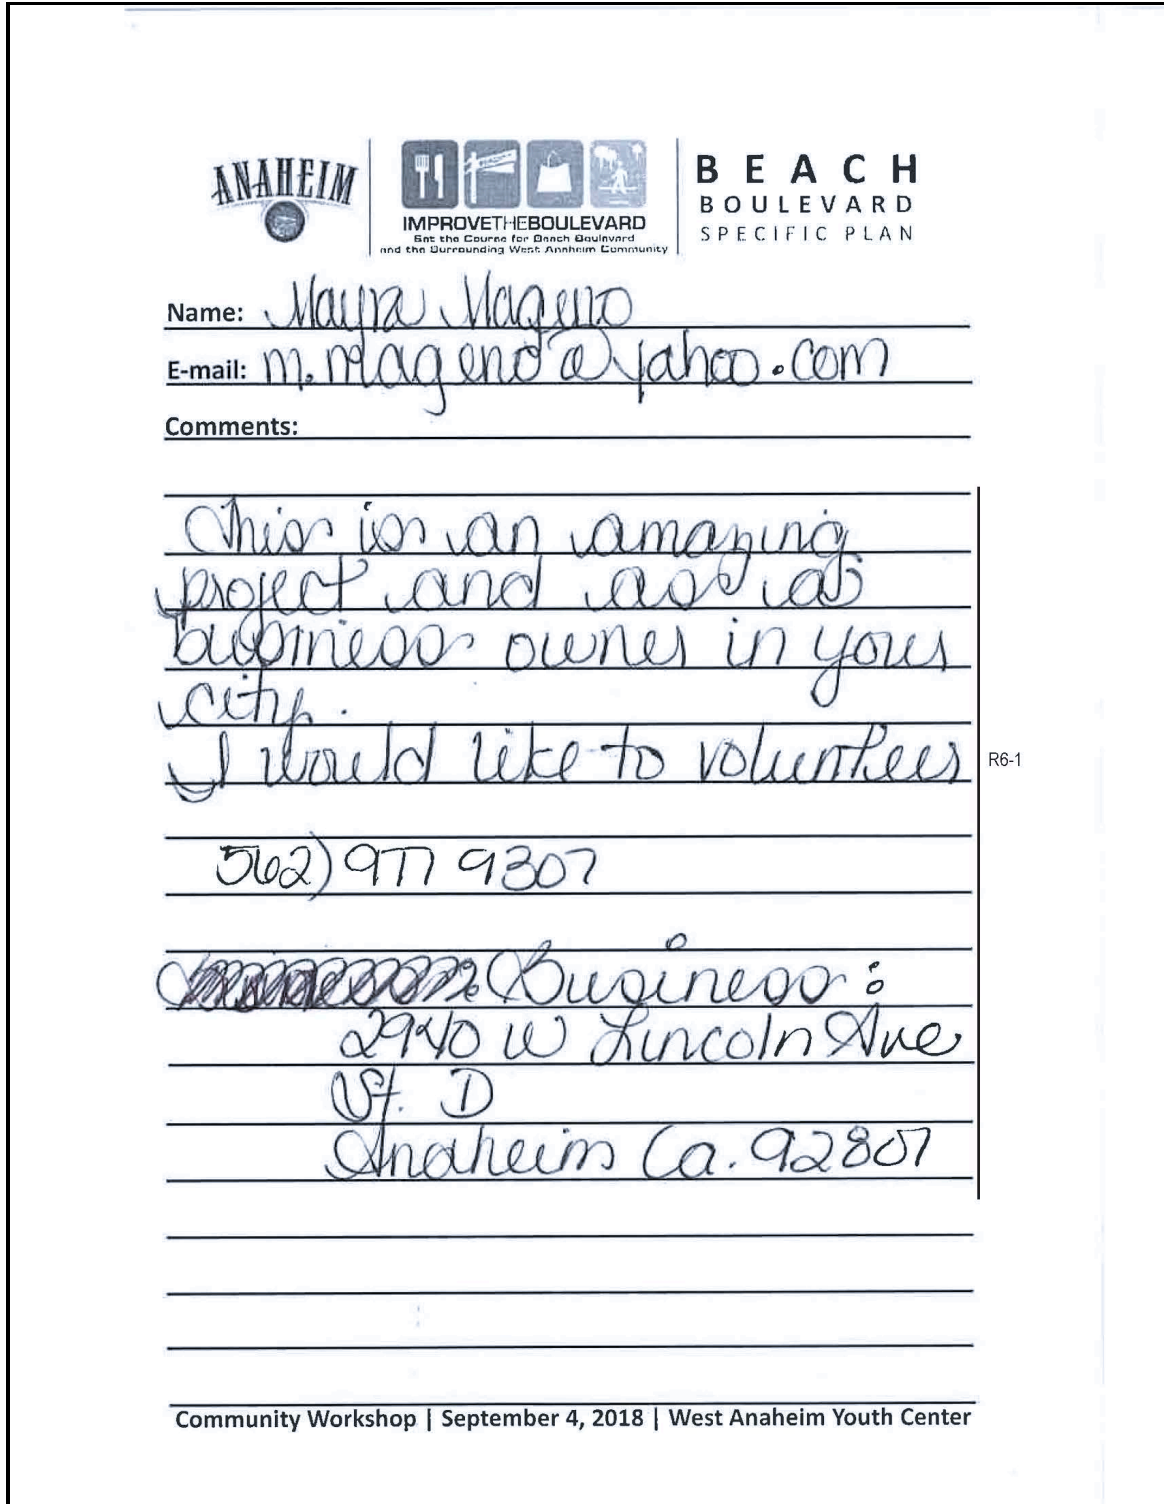 ANAHEIM
IMPROVETHEBOULEVARD
Set the Course for Beach Boulevard
and the Surrounding West Anaheim Community
BEACH
BOULEVARD
SPECIFIC PLAN
Name: Mayra Mageno
E-mail: m.mageno@yahoo.com
Comments:
This is an amazing
project and as a
business owner in your
city.
I would like to volunteer
R6-1
562) 977 9307
Business:
2940 W Lincoln Ave
St. D
Anaheim Ca. 92807
Community Workshop | September 4, 2018 | West Anaheim Youth Center